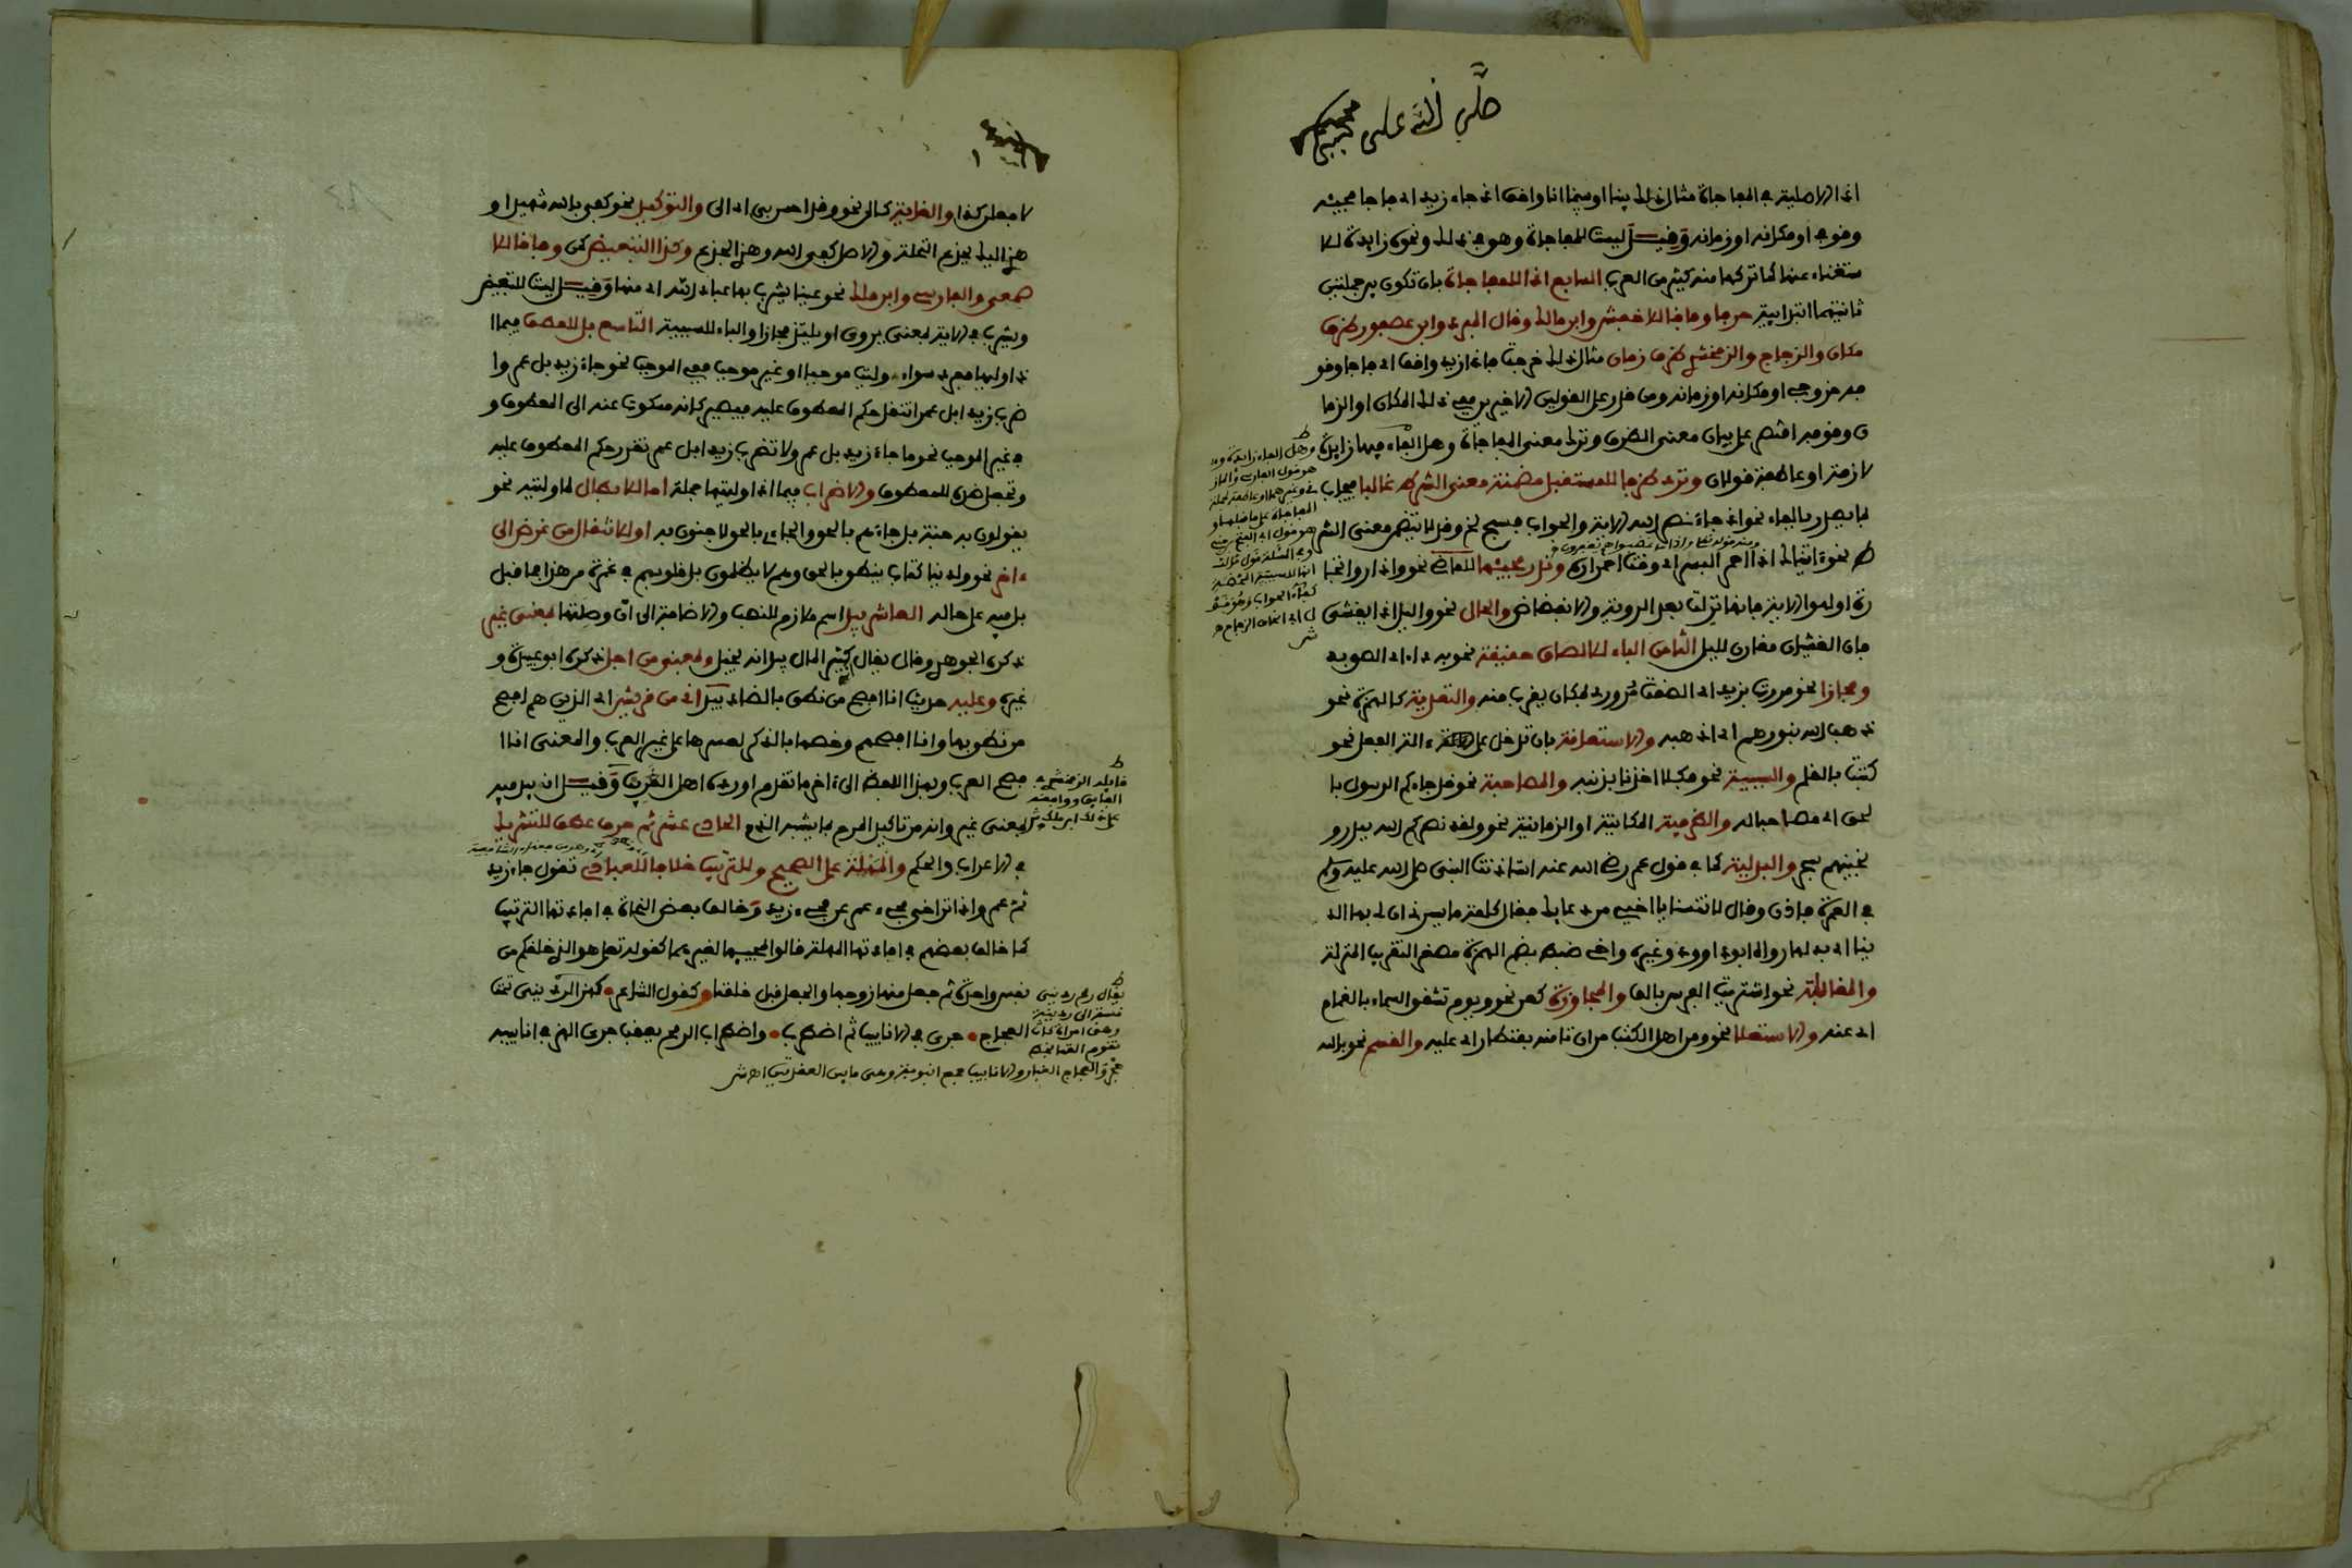 صلى الله على حبيبي محمد
اذ الاصلية في المفاجاة مثال ذلك بينا او بينما انا واقف اذ جاء زيد اي فاجا مجيئه
وقوفي او مكانه او زمانه وقيل ليست للمفاجاة وهو في ذلك ونحوه زايدة للا
ستغناء عنها كما تركها منه كثير من العرب السابع اذا للمفاجاة بان تكون بين جملتين
ثانيتهما ابتدايية حرفا وفاقا للاخفش وابن مالك وقال المبرد وابن عصفور ظرف
مكان والزجاج والزمخشري ظرف زمان مثال ذلك خرجت فاذا زيد واقف اي فاجا وقو
فه خروجي او مكانه او زمانه ومن قدر على القولين الاخيرين ففي ذلك المكان او الزما
ن وقوفه اقتصر على بيان معنى الظرف وترك معنى المفاجاة وهل الفاء فيها زايدة
لازمة او عاطفة قولان وترد ظرفا للمستقبل مضمنة معنى الشرط غالبا فيجاب
بما يصدر بالفاء نحو اذا جاء نصر الله الاية والجواب فسبح نحو وقد لا تتضمن معنى الشر
ط نحو اتيك اذا احمر البسر اي وقت احمراره وندر مجيئها للماضي نحو واذا راوا تجا
رة او لهوا الاية فانها نزلت بعد الروية والانفضاض والحال نحو واليل اذا يغشى
فان الغشيان مقارن لليل الثامن الباء للالصاق حقيقة نحو به داء اي الصق به
ومجازا نحو مررت بزيد اي الصقت مروري بمكان يقرب منه والتعدية كالهمزة نحو
ذهب الله بنورهم اي اذهبه والاستعانة بان تدخل على الة الفعل نحو
كتبت بالقلم والسببية نحو فكلا اخذنا بذنبه والمصاحبة نحو قد جاءكم الرسول با
لحق اي مصاحبا له والظرفية المكانية او الزمانية نحو ولقد نصركم الله ببدر و
نجيناهم بسحر والبدلية كما في قول عمر رضي الله عنه استاذنت النبي صلى الله عليه وسلم
في العمرة فاذن وقال لا تنسنا يا اخي من دعايك فقال كلمة ما يسرني ان لي بها الد
نيا اي بدلها رواه ابو داوود وغيره واخي ضبط بضم الهمزة مصغر التقريب المنزلة
والمقابلة نحو اشتريت الفرس بالف والمجاوزة كعن نحو ويوم تشقق السماء بالغمام
اي عنه والاستعلا نحو ومن اهل الكتب من ان تامنه بقنطار اي عليه والقسم نحو بالله
لافعلن كذا والغاية كالى نحو وقد احسن بي اي الي والتوكيد نحو كفى بالله شهيدا و
هزي اليك بجذع النخلة والاصل كفى الله وهزي الجذع وكذا التبعيض كمن وفاقا للا
صمعي والفارسي وابن مالك نحو عينا يشرب بها عباد الله اي منها وقيل ليست للتبعيض
ويشرب في الاية بمعنى يروى او يلتذ مجازا والباء للسببية التاسع بل للعطف فيما ا
ذا وليها مفرد سواء وليت موجبا او غير موجب ففي الموجب نحو جاء زيد بل عمرو ا
ضرب زيدا بل عمرا تنقل حكم المعطوف عليه فيصير كانه مسكوت عنه الى المعطوف و
في غير الموجب نحو ما جاء زيد بل عمرو لا تضرب زيدا بل عمر تقرر حكم المعطوف عليه
وتجعل ضده للمعطوف والاضراب فيما اذا وليتها جملة اما للابطال لما وليته نحو
يقولون به جنة بل جاءهم بالحق والجاءي بالحق لا جنون به او للانتقال من غرض الى
ءاخر نحو ولدينا كتاب ينطق بالحق وهم لا يظلمون بل قلوبهم في غمرة من هذا فما قبل
بل فيه على حاله العاشر بيد اسم ملازم للنصب والاضافة الى ان وصلتها بمعنى غير
ذكره الجوهري وقال يقال كثير المال بيد انه بخيل وبمعنى من اجل ذكره ابو عبيدة و
غيره وعليه حديث انا افصح من نطق بالضاد بيد اني من قريش اي الذين هم افصح
من نطق بها وانا افصحهم وخصها بالذكر لعسرها على غير العرب والمعنى انا ا
فصح العرب وبهذا اللفظ الى ءاخر ما تقدم اورده اهل الغريب وقيل ان بيد فيه
بمعنى غير وانه من تاكيد المدح بما يشبه الذم الحادي عشر ثم حرف عطف للتشريك
في الاعراب والحكم والمهلة على الصحيح وللترتيب خلافا للعبادي تقول جاء زيد
ثم عمر واذا تراخى مجيء عمر عن مجيء زيد وخالف بعض النحاة في افادتها الترتيب
كما خالف بعضهم في افادتها المهلة قالوا لمجيئها لغيرهما كقوله تعلى هو الذي خلقكم من
نفس واحدة ثم جعل منها زوجها والجعل قبل خلقنا وكقول الشاعر كهز الرديني تحت
العجاج جرى في الانابيب ثم اضطرب واضطراب الرمح يعقب جري الهز في انابيبه